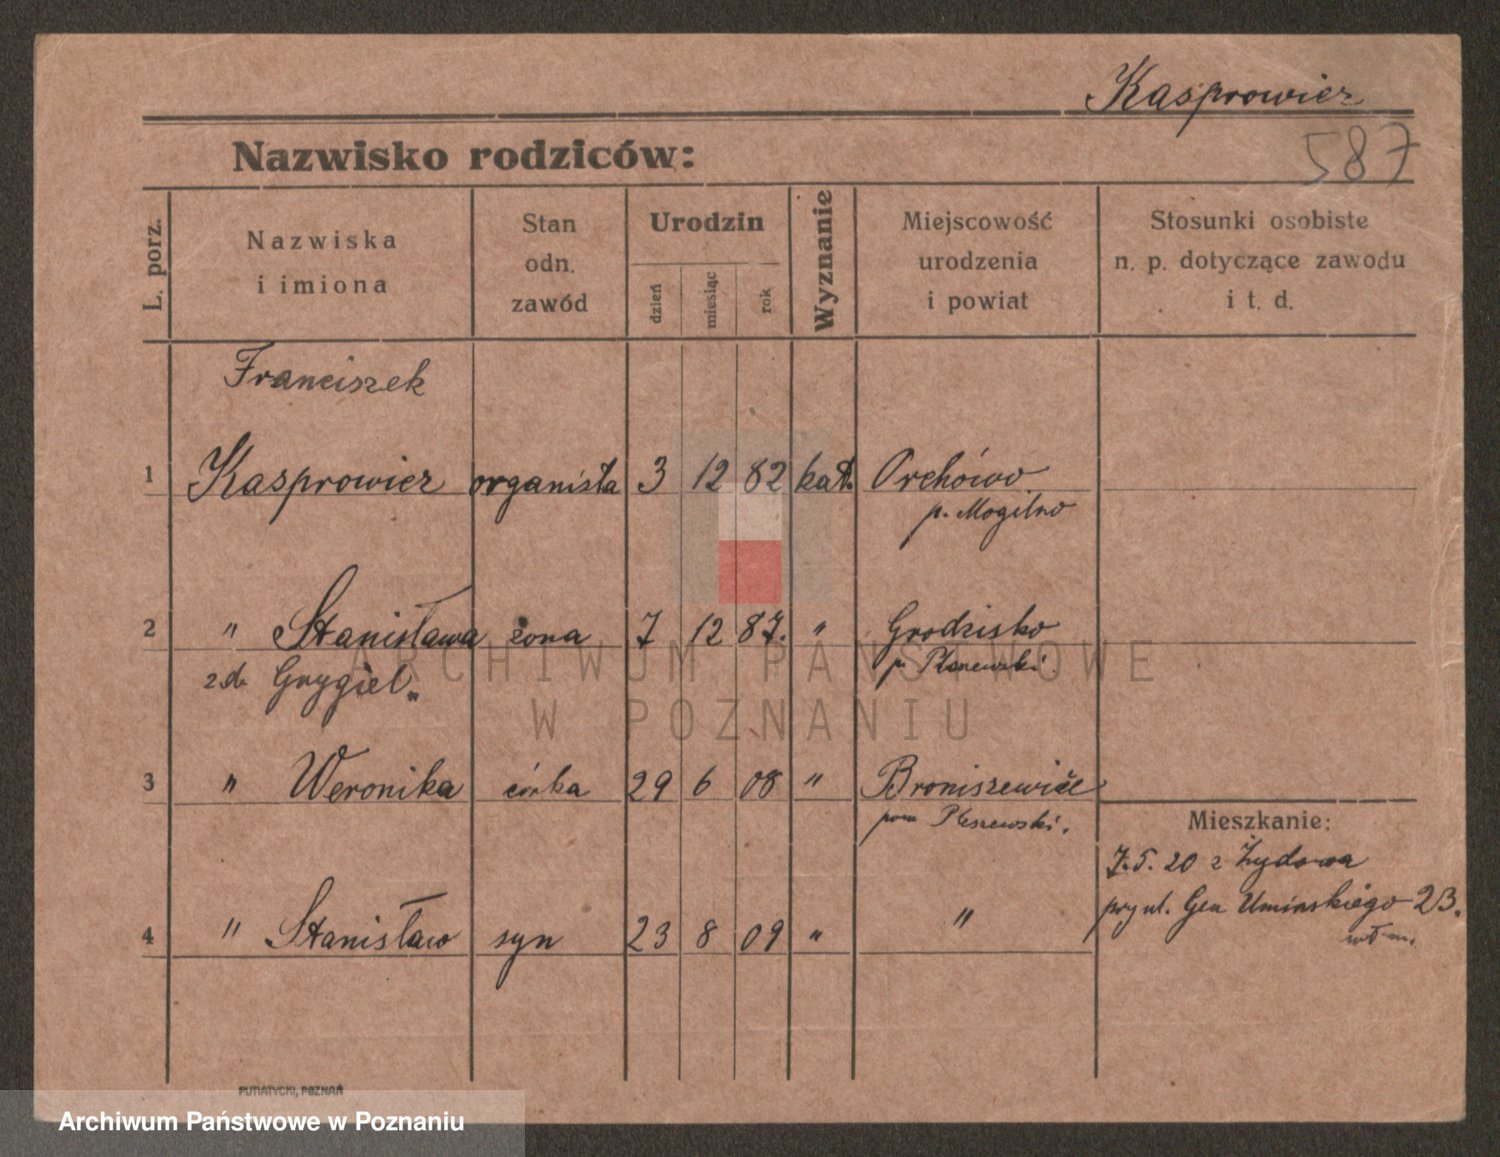 Kasprowicz
587
Nazwisko rodziców:
L. porz.
Nazwiska
i imiona
Stan
odn.
zawód
Urodzin
dzień
miesiąc
rok
Wyznanie
Miejscowość
urodzenia
i powiat
Stosunki osobiste
n. p. dotyczące zawodu
i t. d.
Franciszek
1 Kasprowicz organista 3 12 82 kat. Orchówo
p. Mogilno
2 " Stanisława żona 7 12 87. " Grodzisko
z d. Grygiel. p. Pleszewski.
3 " Weronika córka 29 6 08 " Broniszewice
pow Pleszewski.
Mieszkanie:
7.5. 20 z Żydowa
przy ul. Gen Umińskiego 23.
4 " Stanisław syn 23 8 09 " "
PUTIATYCKI, POZNAŃ
ARCHIWUM PAŃSTWOWE
W POZNANIU
Archiwum Państwowe w Poznaniu